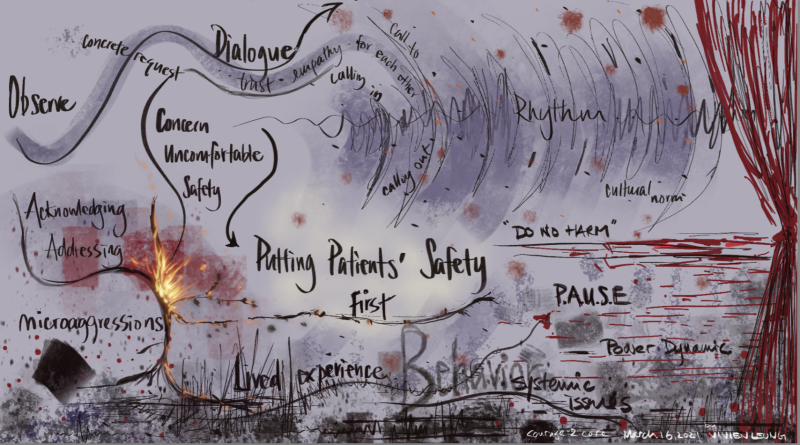 Observe
concrete request
Dialogue
trust empathy for each other
Call to
calling in
calling out
Rhythm
cultural norm
Concern
Uncomfortable
Safety
Acknowledging
Addressing
microaggressions
Putting Patients' Safety
First
"DO NO HARM"
P.A.U.S.E
Power Dynamic
Lived experience
Behavior
Systemic
issues
courage 2 care March 16, 2021 VIVIEN LEUNG